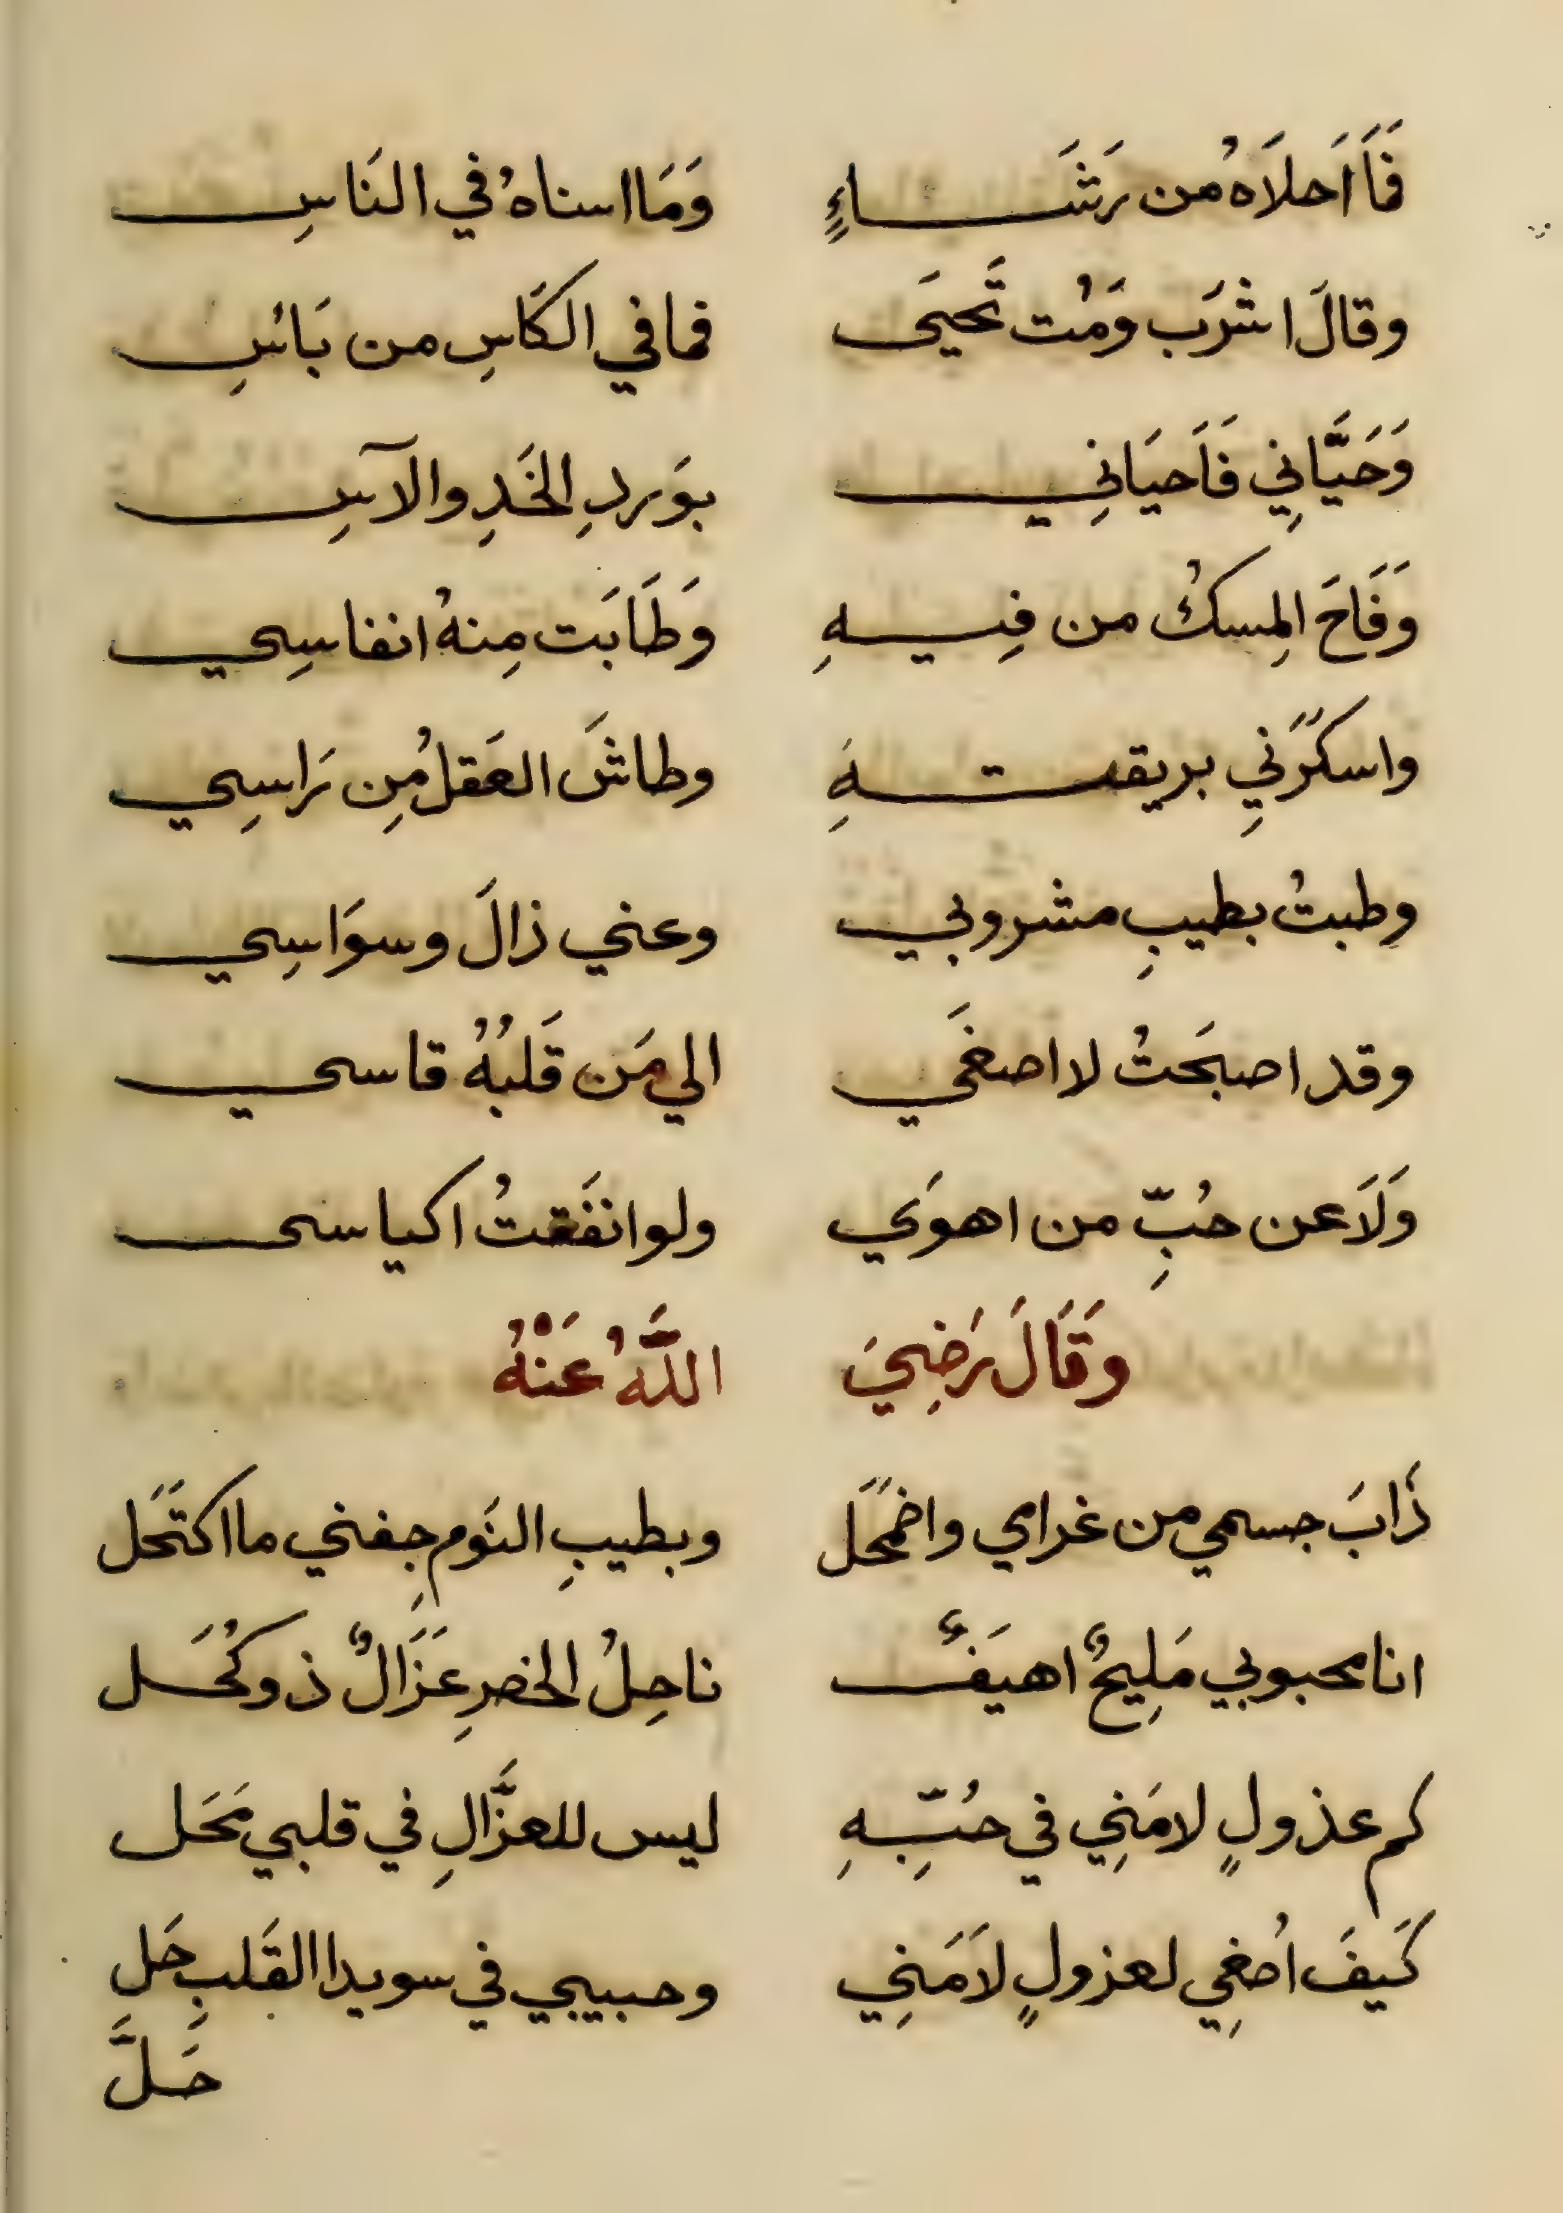 فَمَا اَحلَاهُ من رَشَاءٍ وَمَا اسناهُ في النَاسِ
وقالَ اشرَب وَمُت تَحيَى فما في الكَاسِ من بَائسِ
وَحَيَّانِي فَاَحيَانِي بوَردِ الخَدِ والآسِ
وَفَاحَ المِسكُ من فِيهِ وَطَابَت مِنهُ انفاسِي
واسكرَني بريقتهِ وطاشَ العَقلُ مِن رَاسِي
وطبتُ بطيبِ مشروبي وعني زالَ وسوَاسِي
وقد اصبَحتُ لا اصغَي الي مَن قَلبُهُ قاسي
وَلَا عن حُبِّ من اهوَي ولو انفَقتُ اكياسي
وَقَالَ رَضِيَ اللَّهُ عَنْهُ
ذَابَ جسمي من غرامي واضمَحَل وبطيبِ النَوم جِفني ما اكتَحَل
انا محبوبي مَلِيحٌ اهيَفٌ ناحِلُ الخصرِ غَزَالٌ ذو كُحَل
كم عذولٍ لامَنِي في حُبِّهِ ليس للعزَّالِ في قلبي مَحَل
كَيفَ اُصغِي لعزولٍ لَامَنِي وحبيبي في سويدا القَلبِ حَل
حَلَّ